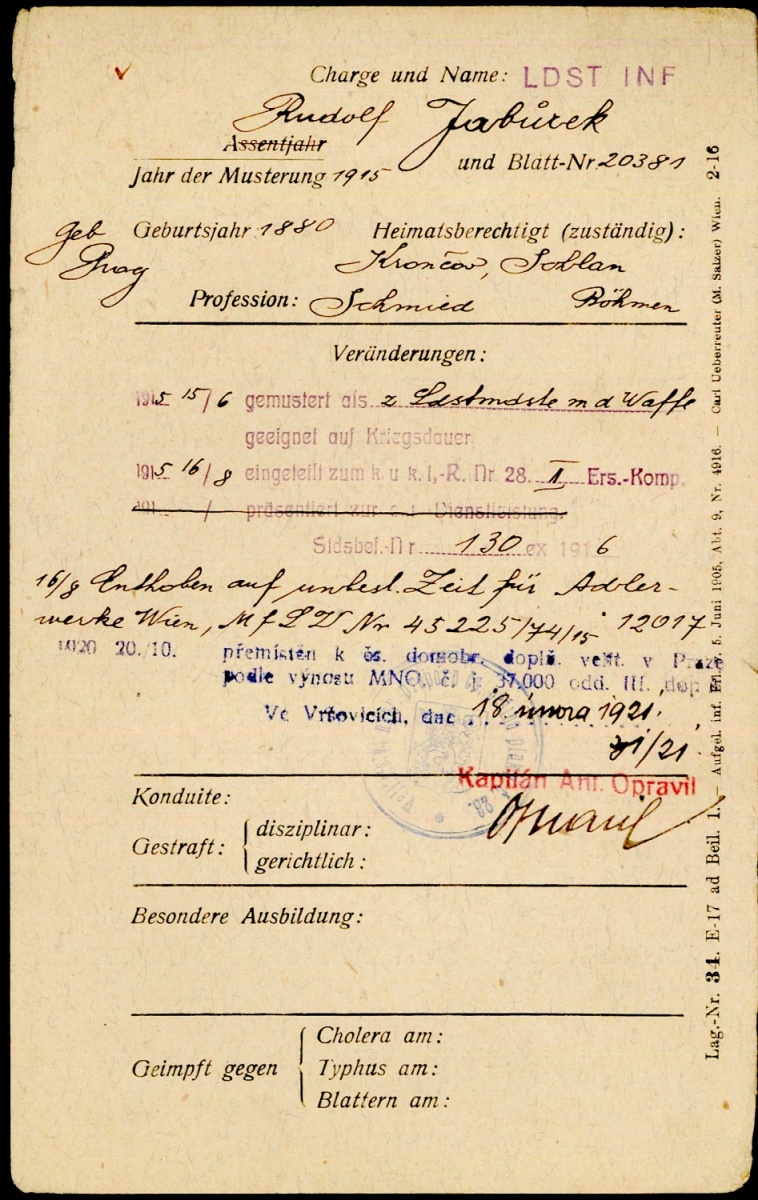 Charge und Name: LDST INF
Rudolf Jabůrek
Assentjahr
Jahr der Musterung 1915 und Blatt-Nr. 20381
geb Geburtsjahr 1880 Heimatsberechtigt (zuständig):
Prag Krončov, Schlan
Profession: Schmied Böhmen
Veränderungen:
1915 15/6 gemustert als z Ldstmdste m d Waffe
geeignet auf Kriegsdauer
1915 16/8 eingeteilt zum k. u. k. I.-R. Nr 28. I Ers.-Komp.
191 / präsentiert zur Dienstleistung.
Stdsbef.-Nr 130 ex 1916
16/8 Enthoben auf unbest. Zeit für Adler-
werke Wien, MfLV Nr 45225/74/15 12017
1920 20./10. přemístěn k čs. domobr. doplň. velit. v Praze
podle výnosu MNO. č. j. 37.000 odd. III. dop
Ve Vršovicích, dne 18. února 1921.
31/21
Kapitán Ant. Opravil
Opravil
Konduite:
Gestraft: disziplinar:
gerichtlich:
Besondere Ausbildung:
Geimpft gegen Cholera am:
Typhus am:
Blattern am:
Lag.-Nr. 34. E-17 ad Beil. 1. — Aufgel. inf. Erl. v. 5. Juni 1905, Abt. 9, Nr. 4916. — Carl Ueberreuter (M. Salzer) Wien. 2-16